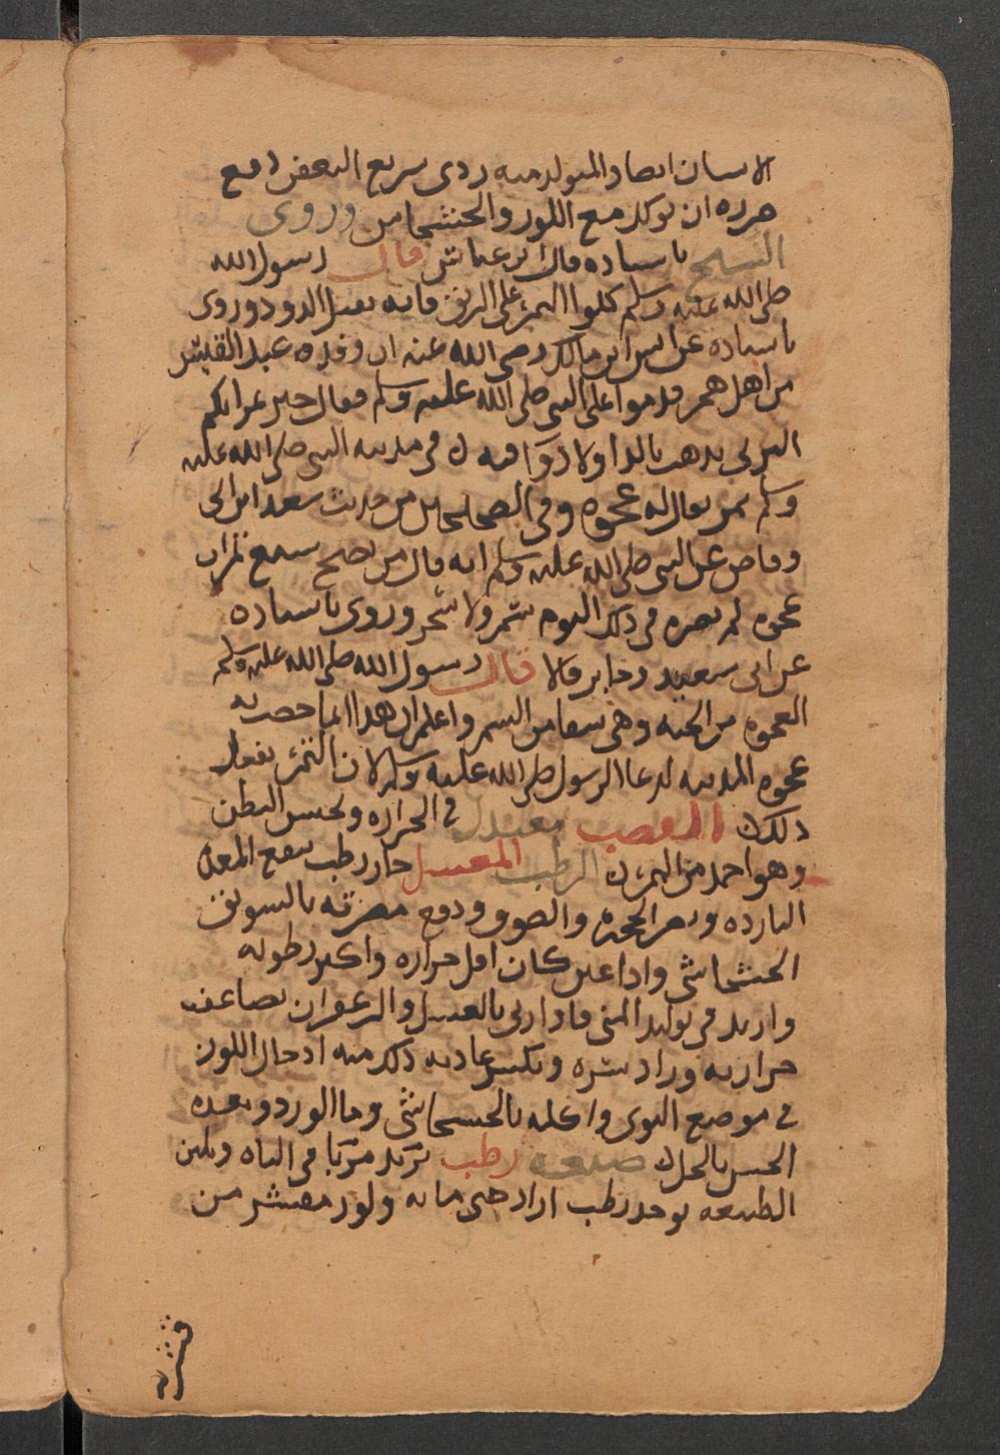 الاسنان ايضا والمتولد منه ردى سريع التعفن دفع
ضرره ان توكل مع اللوز والخشخاش وروى
الشيخ باسناده قال ابن عباس قال رسول الله
صلى الله عليه وسلم كلوا التمر على الريق فانه يقتل الدود وروى
باسناده عن انس ابن مالك رضى الله عنه ان وفد عبد القيس
من اهل هجر قدموا على النبى صلى الله عليه وسلم فقال خير تمراتكم
البرنى يذهب بالدا ولا دوا فيه ك فى مدينه النبى صلى الله عليه
وسلم تمر يقال له عجوه وفى الصحيحين من حديث سعد ابن ابى
وقاص عن النبى صلى الله عليه وسلم انه قال من تصبح سبع تمرات
عجوه لم يضره فى ذلك اليوم سم ولا سحر وروى باسناده
عن ابى سعيد وجابر قالا قال رسول الله صلى الله عليه وسلم
العجوه من الجنه وهى شفا من السم واعلم ان هذا انما خصت به
عجوه المدينه لدعا الرسول صلى الله عليه وسلم لا ان التمر يفعل
ذلك القصب معتدل فى الحراره ويحبس البطن
وهو احمد من التمر ك الرطب المعسل حار رطب ينفع المعده
البارده ويضر الحنجره والصوت ودفع مضرته بالسويق
الخشخاشى واذا عتق كان اقل حراره واكثر رطوبه
وازيد فى توليد المنى فاذا ربى بالعسل والزعفران تضاعف
حرارته وزاد شره ويكسر عاديه ذلك منه ادخال اللوز
فى موضع النوى واكله بالخشخاشى وما الورد وبعده
الخس بالخل ك صنعه رطب يزيد مربا فى الباه ويلين
الطبيعه يوخذ رطب ازاد جنى مايه ولوز مقشر من
قشريه